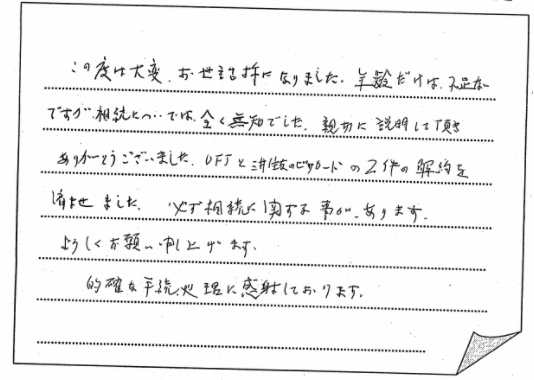 この度は大変、お世話様になりました。年齢だけは、不足ない
ですが、相続については、全く無知でした。親切に説明して頂き
ありがとうございました。UFJと浦族のビザカードの2件の解約を
済ませました。必ず相続に関する事が、あります。
よろしくお願い申し上げます。
的確な手続処理に感謝しております。